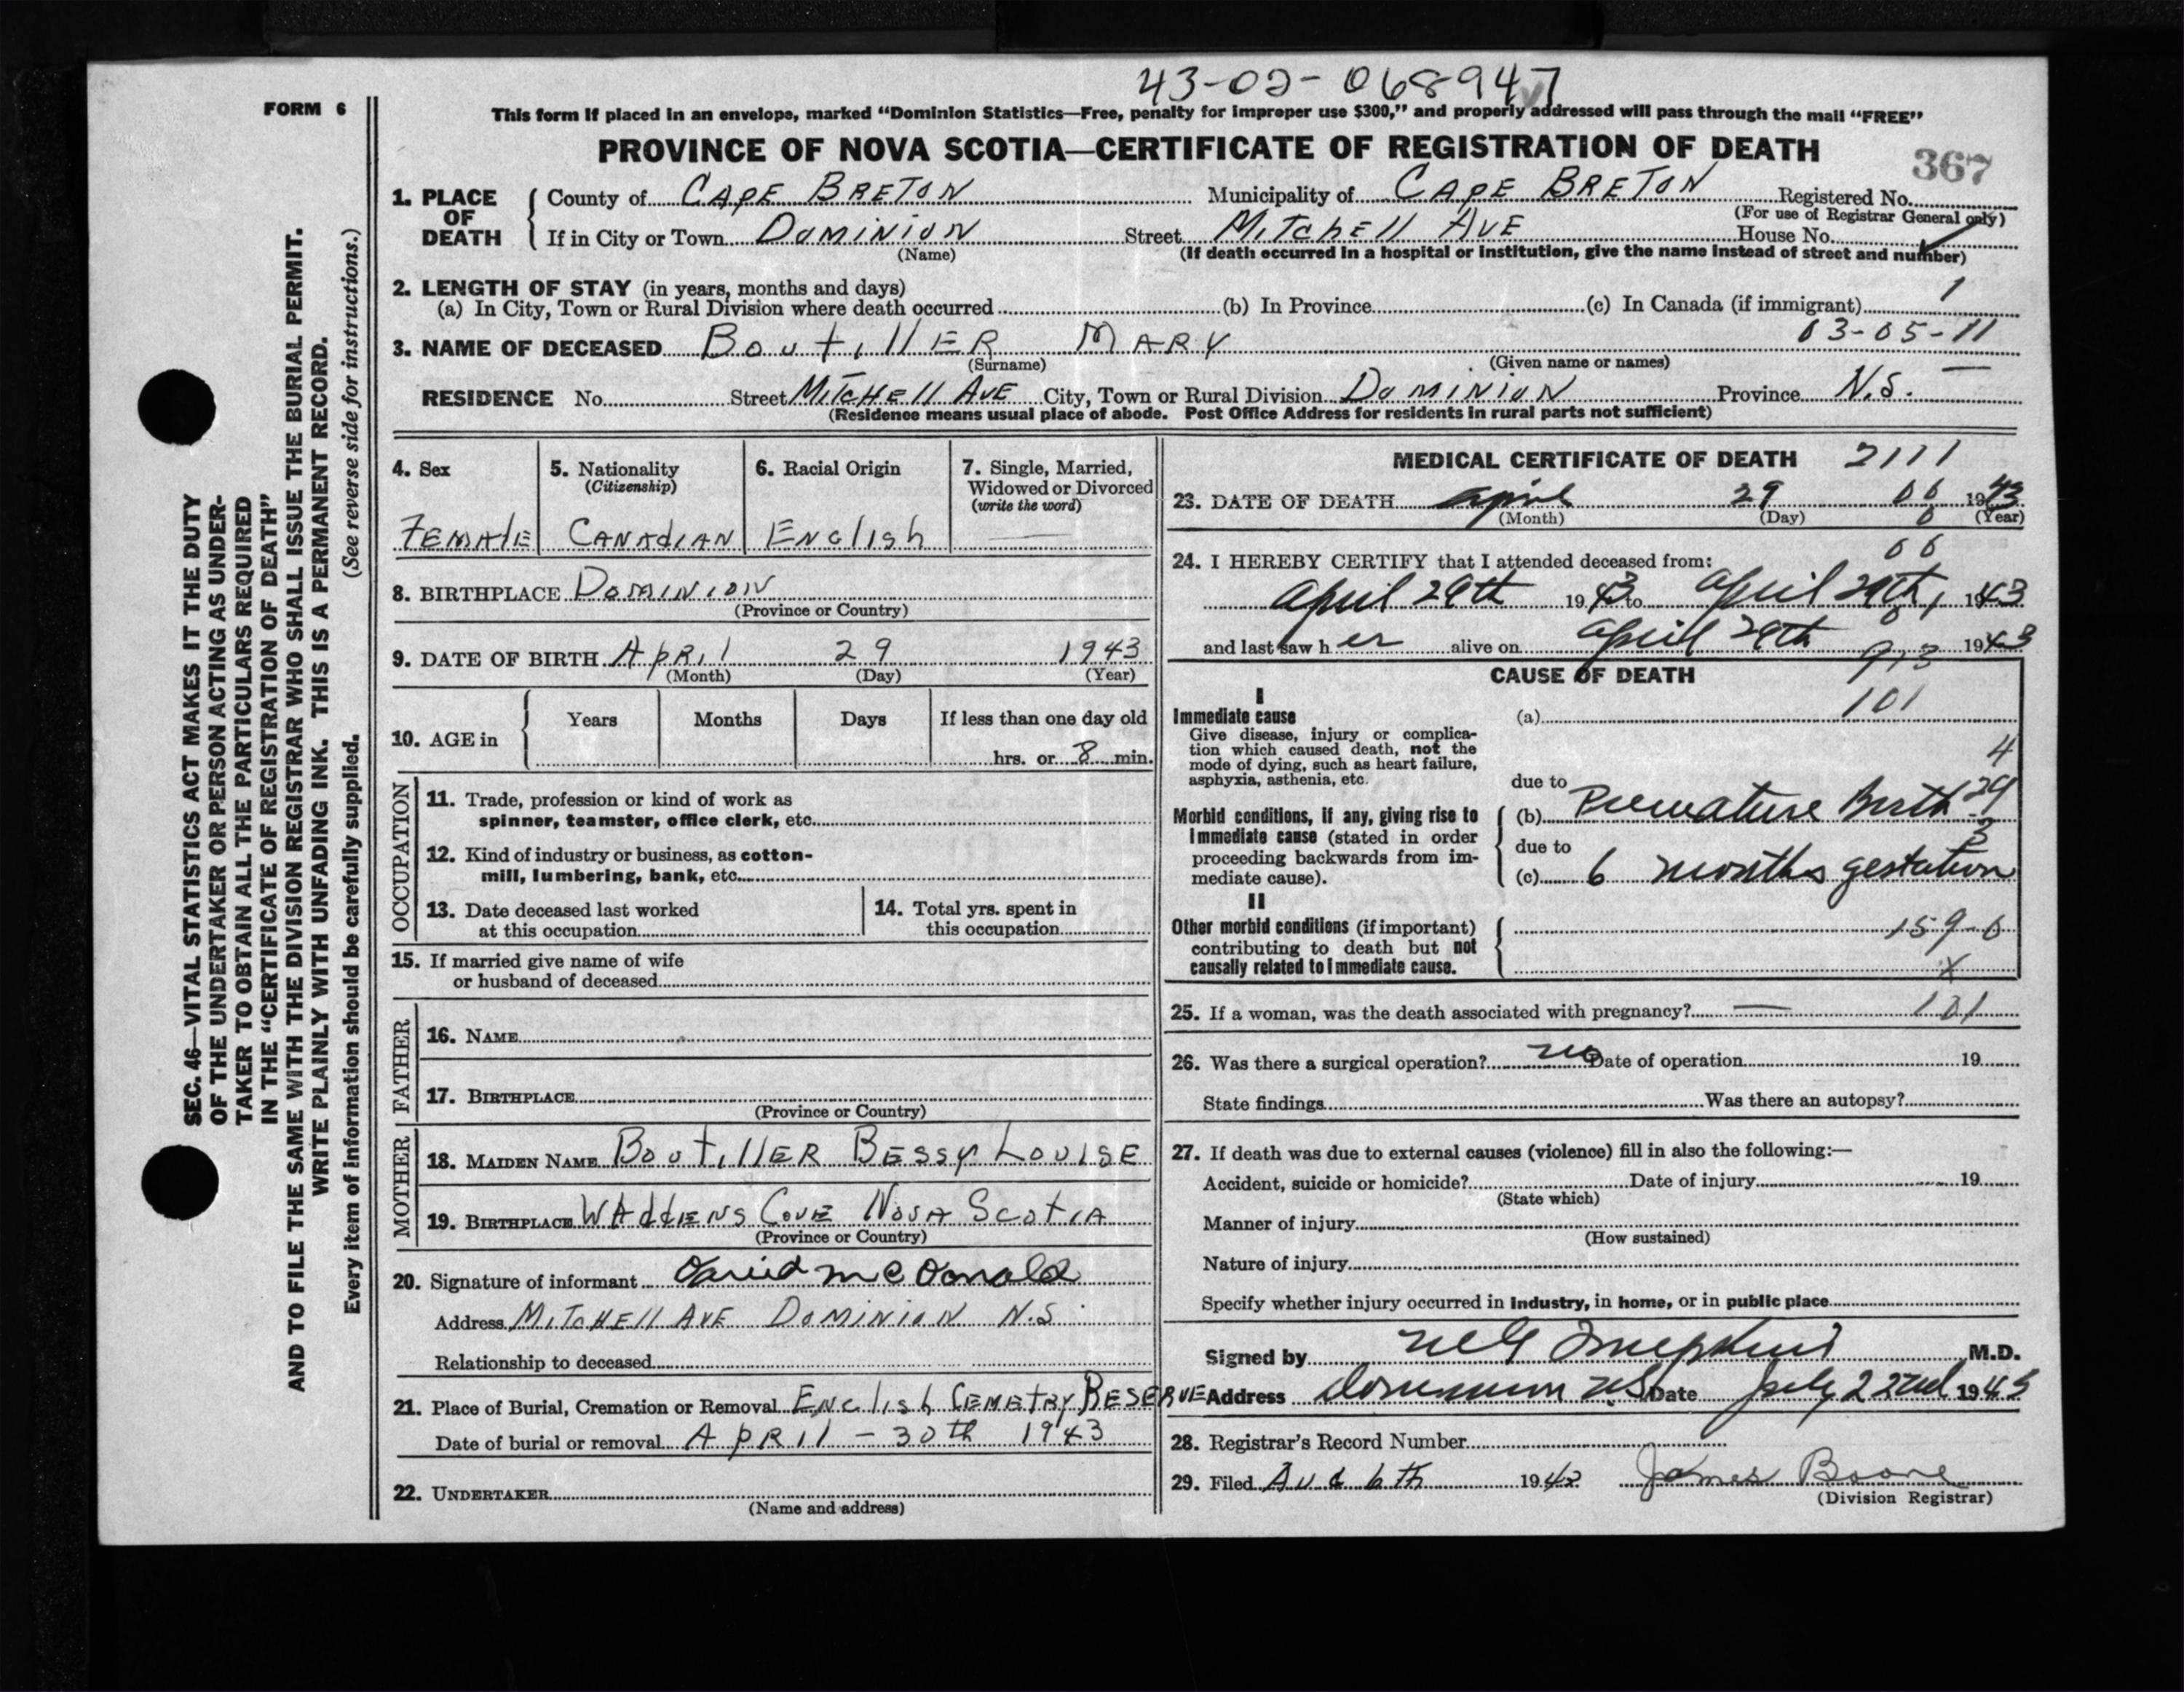 43-02-068947
FORM 6
This form if placed in an envelope, marked “Dominion Statistics—Free, penalty for improper use $300,” and properly addressed will pass through the mail “FREE”
PROVINCE OF NOVA SCOTIA—CERTIFICATE OF REGISTRATION OF DEATH
367
1. PLACE OF DEATH
County of CAPE BRETON Municipality of CAPE BRETON Registered No.
(For use of Registrar General only)
If in City or Town DOMINION Street MITCHELL AVE House No.
(Name) (If death occurred in a hospital or institution, give the name instead of street and number)
2. LENGTH OF STAY (in years, months and days)
(a) In City, Town or Rural Division where death occurred (b) In Province (c) In Canada (if immigrant) 1
03-05-11
3. NAME OF DECEASED BOUTILLER MARY
(Surname) (Given name or names)
RESIDENCE No. Street MITCHELL AVE City, Town or Rural Division DOMINION Province N.S.
(Residence means usual place of abode. Post Office Address for residents in rural parts not sufficient)
4. Sex
FEMALE
5. Nationality
(Citizenship)
CANADIAN
6. Racial Origin
ENGLISH
7. Single, Married,
Widowed or Divorced
(write the word)
—
8. BIRTHPLACE DOMINION
(Province or Country)
9. DATE OF BIRTH APRIL 29 1943
(Month) (Day) (Year)
10. AGE in Years Months Days If less than one day old
hrs. or 8 min.
OCCUPATION
11. Trade, profession or kind of work as
spinner, teamster, office clerk, etc.
12. Kind of industry or business, as cotton-
mill, lumbering, bank, etc.
13. Date deceased last worked
at this occupation
14. Total yrs. spent in
this occupation
15. If married give name of wife
or husband of deceased
FATHER
16. NAME
17. BIRTHPLACE
(Province or Country)
MOTHER
18. MAIDEN NAME BOUTILLER BESSY LOUISE
19. BIRTHPLACE WADDENS COVE NOVA SCOTIA
(Province or Country)
20. Signature of informant David McDonald
Address MITCHELL AVE DOMINION N.S
Relationship to deceased
21. Place of Burial, Cremation or Removal ENGLISH CEMETRY RESERVE
Date of burial or removal APRIL - 30th 1943
22. UNDERTAKER
(Name and address)
MEDICAL CERTIFICATE OF DEATH 2111
23. DATE OF DEATH April 29 1943
(Month) (Day) (Year)
24. I HEREBY CERTIFY that I attended deceased from:
April 29th 1943 to April 29th, 1943
and last saw her alive on April 29th 1943
CAUSE OF DEATH
I
Immediate cause
Give disease, injury or complica-
tion which caused death, not the
mode of dying, such as heart failure,
asphyxia, asthenia, etc.
(a) 101
4
due to
Morbid conditions, if any, giving rise to
immediate cause (stated in order
proceeding backwards from im-
mediate cause).
(b) Premature Birth 29
due to 3
(c) 6 months gestation
II
Other morbid conditions (if important)
contributing to death but not
causally related to immediate cause.
159-0
X
25. If a woman, was the death associated with pregnancy? — 101
26. Was there a surgical operation? no Date of operation 19
State findings Was there an autopsy?
27. If death was due to external causes (violence) fill in also the following:—
Accident, suicide or homicide? Date of injury 19
(State which)
Manner of injury
(How sustained)
Nature of injury
Specify whether injury occurred in industry, in home, or in public place
Signed by M.D.
Address Dominion NS Date July 22nd 1943
28. Registrar's Record Number
29. Filed AUG 6th 1943 James Boone
(Division Registrar)
SEC. 46—VITAL STATISTICS ACT MAKES IT THE DUTY
OF THE UNDERTAKER OR PERSON ACTING AS UNDER-
TAKER TO OBTAIN ALL THE PARTICULARS REQUIRED
IN THE “CERTIFICATE OF REGISTRATION OF DEATH”
AND TO FILE THE SAME WITH THE DIVISION REGISTRAR WHO SHALL ISSUE THE BURIAL PERMIT.
WRITE PLAINLY WITH UNFADING INK. THIS IS A PERMANENT RECORD.
Every item of information should be carefully supplied. (See reverse side for instructions.)